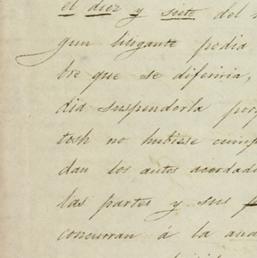 el diez y siete del
gun litigante pedia
bre que se difiriria,
dia suspenderla por
tosh no hubiese cump
dan los autos acordad
las partes y sus
concurran á la aud